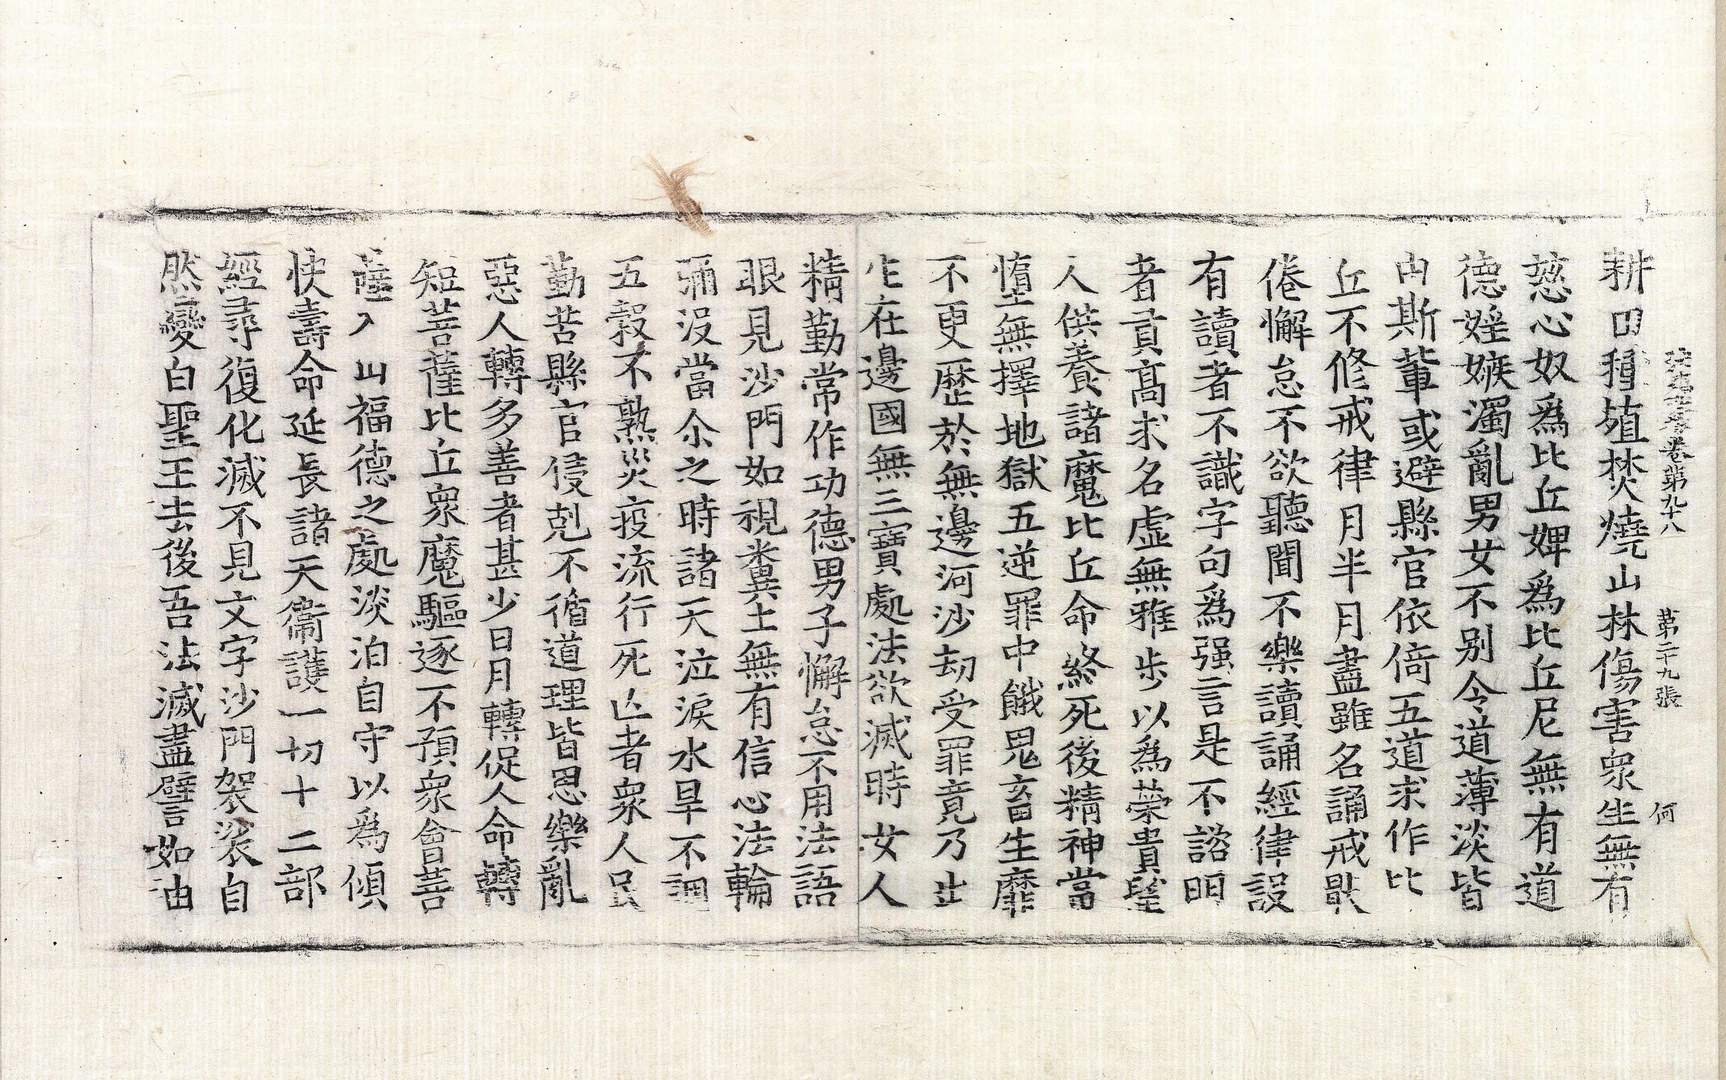 法苑珠林卷第九十八 第二十九張 何
耕田種殖焚燒山林傷害衆生無有
慈心奴爲比丘婢爲比丘尼無有道
德婬嫉濁亂男女不别令道薄淡皆
由斯輩或避縣官依倚五道求作比
丘不修戒律月半月盡雖名誦戒猒
倦懈怠不欲聽聞不樂讀誦經律設
有讀者不識字句爲强言是不諮明
者貢高求名虛無雅步以爲榮貴望
人供養諸魔比丘命終死後精神當
墮無擇地獄五逆罪中餓鬼畜生靡
不更歷於無邊河沙劫受罪竟乃出
生在邊國無三寶處法欲滅時女人
精勤常作功德男子懈怠不用法語
眼見沙門如視糞土無有信心法輪
彌沒當尒之時諸天泣淚水旱不調
五穀不熟災疫流行死亡者衆人民
勤苦縣官侵剋不循道理皆思樂亂
惡人轉多善者甚少日月轉促人命轉
短菩薩比丘衆魔驅逐不預衆會菩
薩入山福德之處淡泊自守以爲傾
快壽命延長諸天衞護一切十二部
經尋復化滅不見文字沙門袈裟自
然變白聖王去後吾法滅盡譬如油